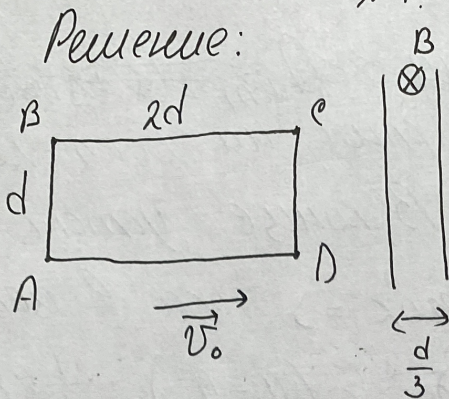 Решение:
B 2d C B
d
A D
v₀
d/3